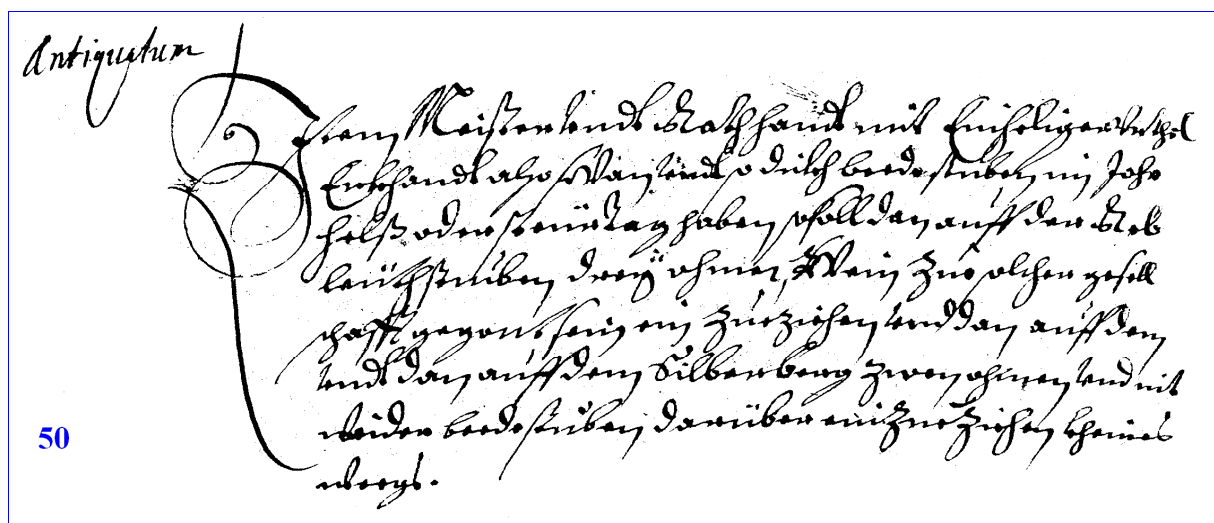 Antiquatum
Item Meister vndt Rath handt mit Einheliger Vrthel
Erkhandt also Wan vndt so dickh beede stuben im Johr
helß oder steür tag haben so soll dan auff der Reb
leüth stuben dreÿ ohmen Wein zue solcher gesell
schafft gegont sein ein zue ziehen vnd dan auff dem
vndt dan auff dem Silberberg zwen ohmen vnd nit
weider beede stuben darüber ein zue ziehen kheines
weegs.
50